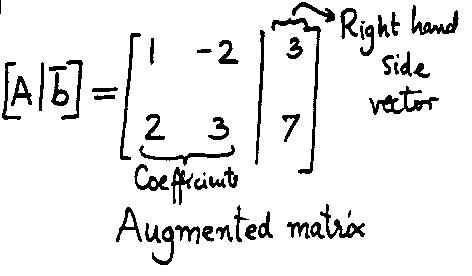 [A|b̅] = [1 -2 | 3
2 3 | 7]
Right hand
side
vector
Coefficients
Augmented matrix